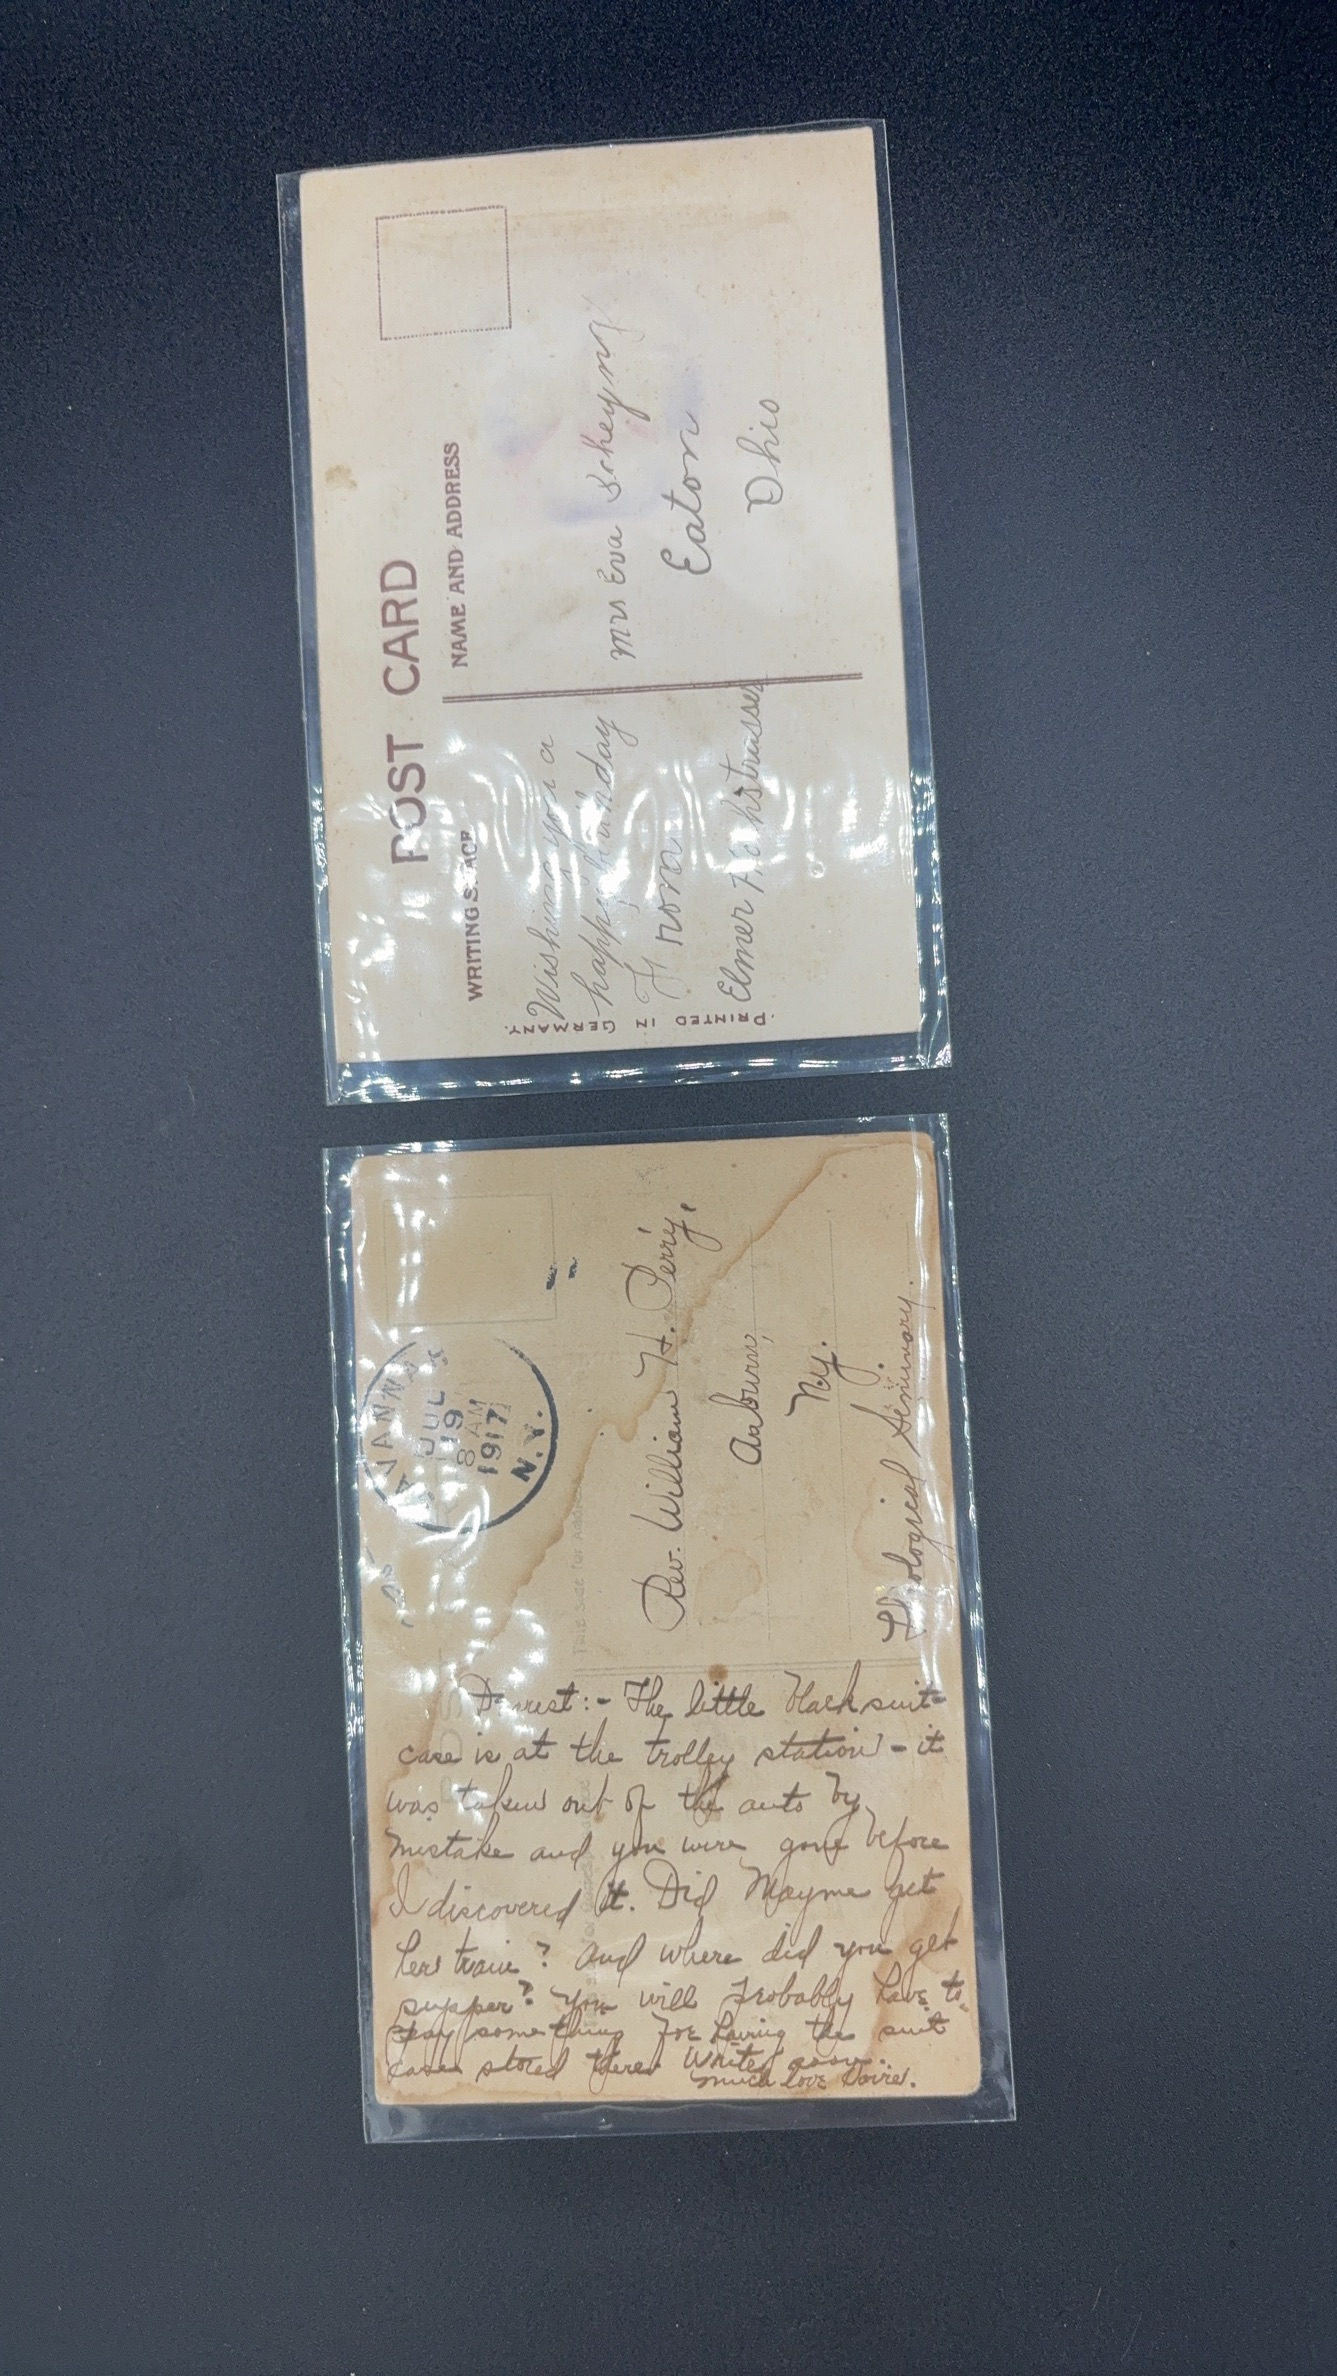 POST CARD
WRITING SPACE
NAME AND ADDRESS
Wishing you a
happy birthday
From
Elmer Hochstrasser
Mrs Eva
Eaton
Ohio
PRINTED IN GERMANY.
JUL 19
8 AM
1917
N.Y.
This Side for Address
Rev. William H. Perry,
Auburn,
N.Y.
Theological Seminary.
Dearest:- The little black suit-
case is at the trolley station - it
was taken out of the auto by
mistake and you were gone before
I discovered it. Did Mayme get
her train? And where did you get
supper? You will probably have to
pay something for having the suit
case stored there. Write soon.
Much love